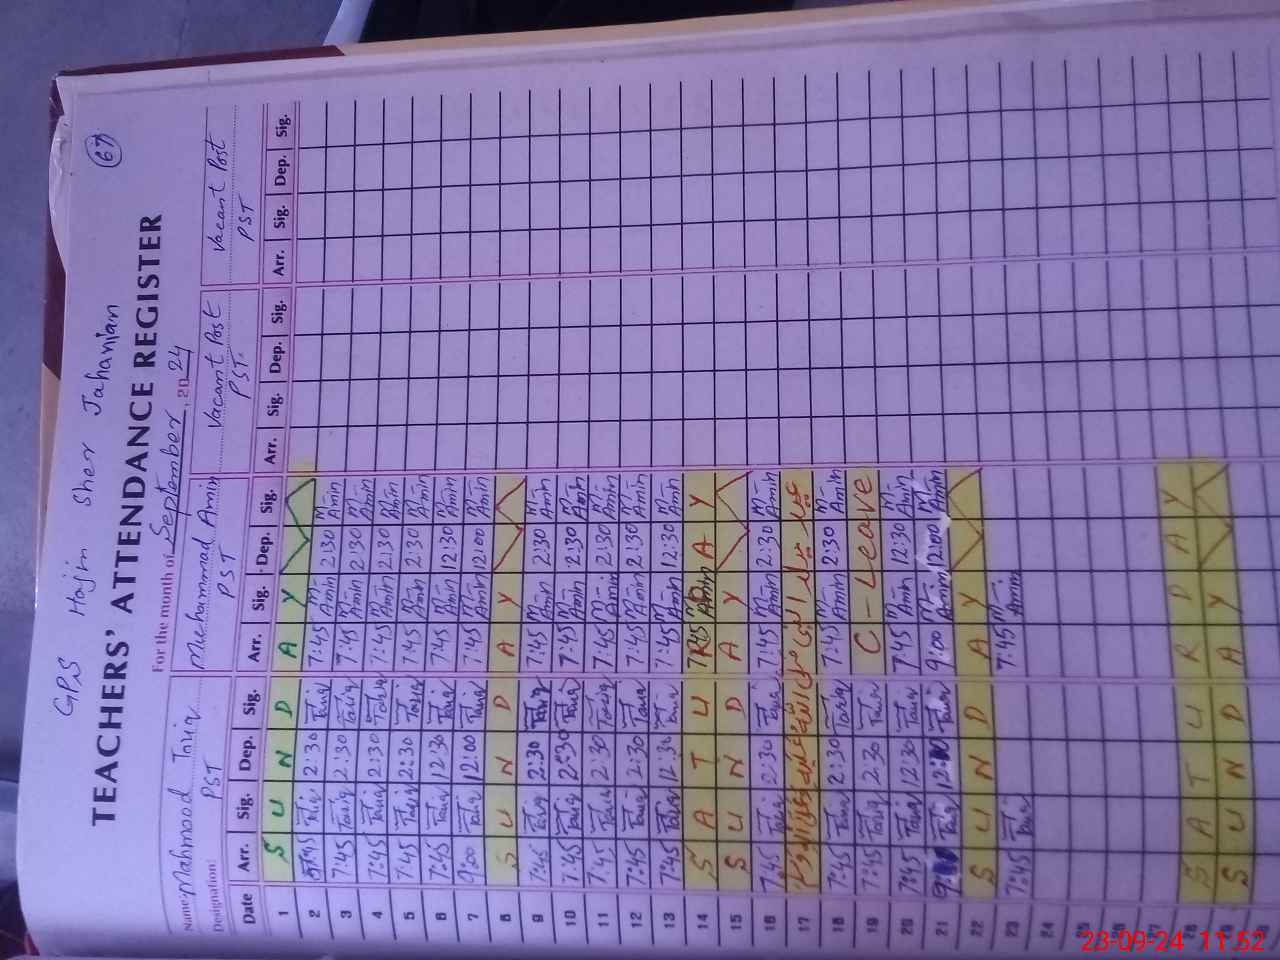 GPS Hajin Sher Jahanian
67
TEACHERS' ATTENDANCE REGISTER
For the month of September, 2024
Name: Mahmood Tariq Muhammad Amin Vacant Post Vacant Post
Designation: PST PST PST PST
Date Arr. Sig. Dep. Sig. Arr. Sig. Dep. Sig. Arr. Sig. Dep. Sig. Arr. Sig. Dep. Sig.
1 S U N D A Y
2 7:45 Tariq 2:30 Tariq 7:45 M-Amin 2:30 M-Amin
3 7:45 Tariq 2:30 Tariq 7:45 M-Amin 2:30 M-Amin
4 7:45 Tariq 2:30 Tariq 7:45 M-Amin 2:30 M-Amin
5 7:45 Tariq 2:30 Tariq 7:45 M-Amin 2:30 M-Amin
6 7:45 Tariq 12:30 Tariq 7:45 M-Amin 12:30 M-Amin
7 9:00 Tariq 12:00 Tariq 7:45 M-Amin 12:00 M-Amin
8 S U N D A Y
9 7:45 Tariq 2:30 Tariq 7:45 M-Amin 2:30 M-Amin
10 7:45 Tariq 2:30 Tariq 7:45 M-Amin 2:30 M-Amin
11 7:45 Tariq 2:30 Tariq 7:45 M-Amin 2:30 M-Amin
12 7:45 Tariq 2:30 Tariq 7:45 M-Amin 2:30 M-Amin
13 7:45 Tariq 12:30 Tariq 7:45 M-Amin 12:30 M-Amin
14 S A T U R D A Y
15 S U N D A Y
16 7:45 Tariq 2:30 Tariq 7:45 M-Amin 2:30 M-Amin
17 عید میلاد النبی
18 7:45 Tariq 2:30 Tariq 7:45 M-Amin 2:30 M-Amin
19 7:45 Tariq 2:30 Tariq C-Leave
20 7:45 Tariq 12:30 Tariq 7:45 M-Amin 12:30 M-Amin
21 Tariq 12:00 Tariq 9:00 M-Amin 12:00 M-Amin
22 S U N D A Y
23 7:45 Tariq 7:45 M-Amin
24
25
26
27
28 S A T U R D A Y
29 S U N D A Y
23-09-24 11:52